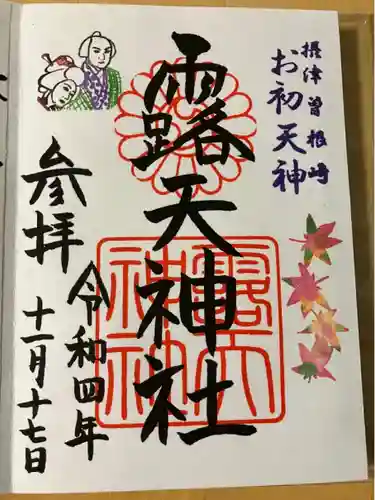 摂津曽根崎
お初天神
露天神社
参拝
令和四年
十一月十七日
露天神社